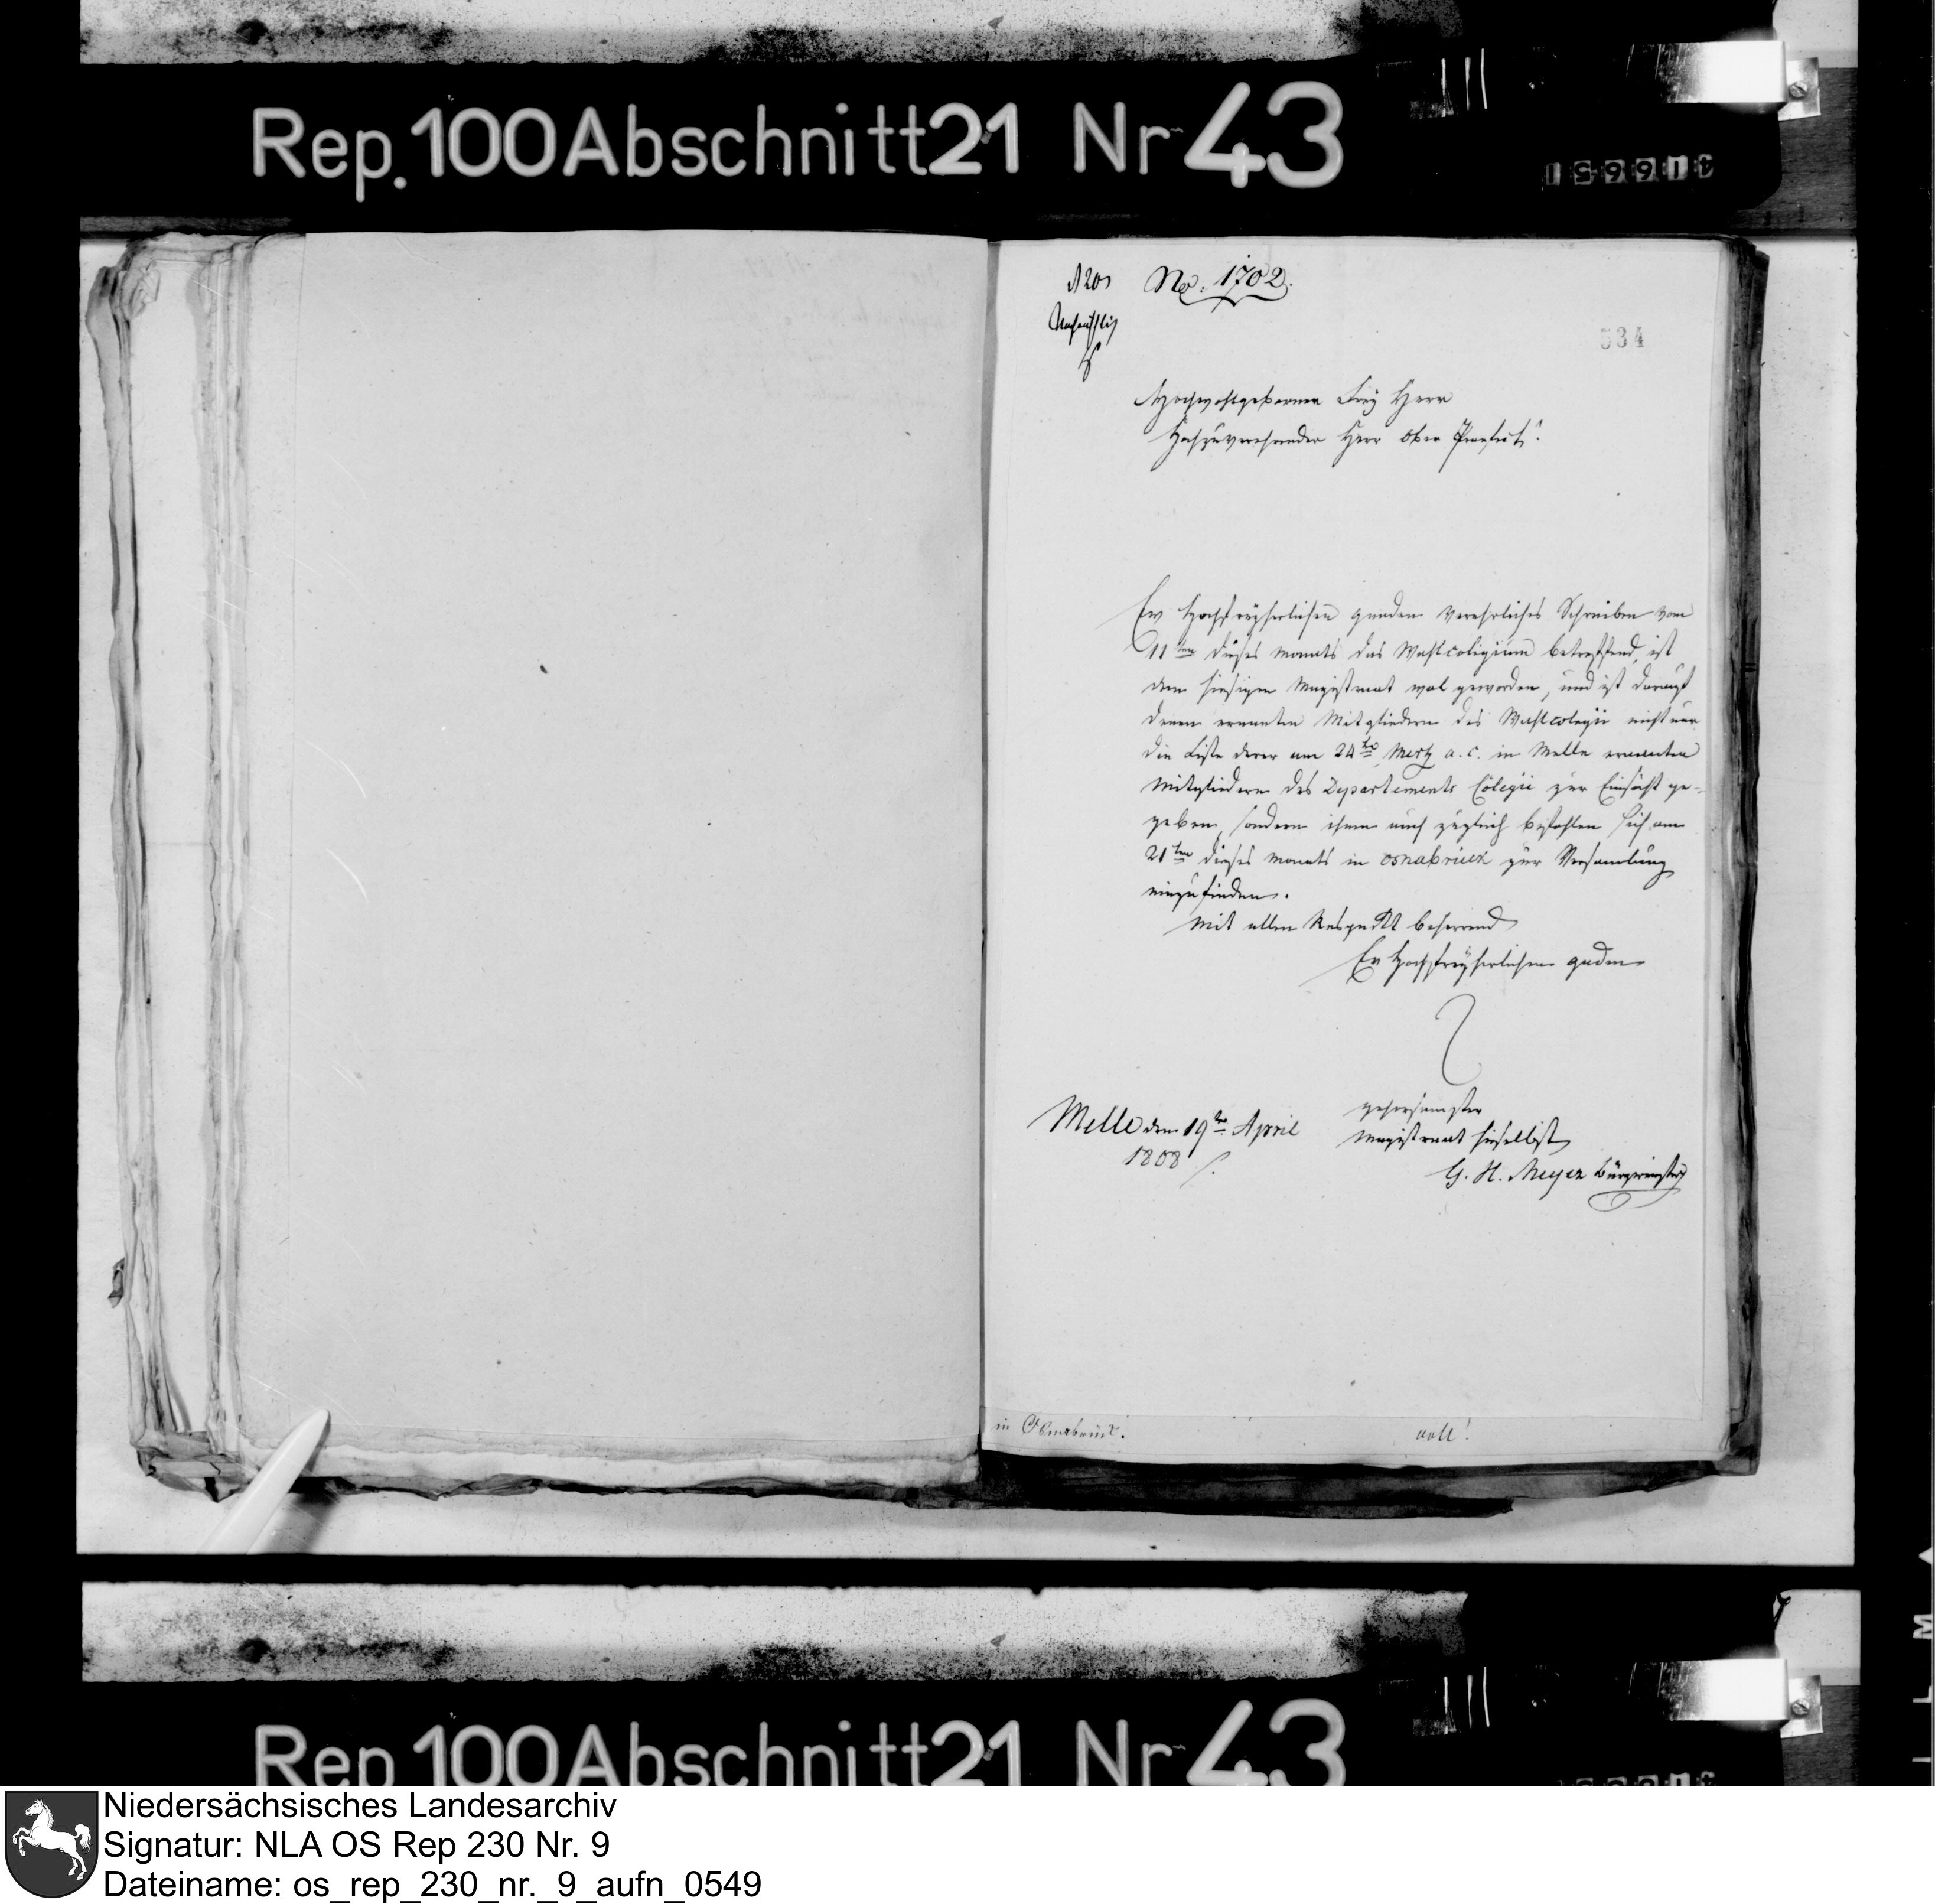 Rep. 100 Abschnitt 21 Nr 43
No. 1702.
534
Hochwohlgeborner Frey Herr
Hochzuverehrender Herr Ober Praefect!
Ew Hochfreyherlichen gnaden verehrliches Schreiben vom
11ten dieses Monats das Wahlcolegium betreffend, ist
dem hiesigen Magistraat wol geworden, und ist darauf
denen ernanten Mitgliedern des Wahlcolegii nicht nur
die Liste derer am 24ten Mertz a. c. in Melle ernanten
Mitgliedern des Departements Colegii zur Einsicht ge-
geben, sondern ihnen auch zugleich befohlen sich am
21ten dieses Monats in osnabrück zur Versamlung
einzufinden.
Mit allen Respeckt beharrend
Ew Hochfreyherlichen gnaden
gehorsamster
Melle den 19ten April
1808
Magistraat hieselbst
G. H. Meyer Bürgermeister
in Osnabrück.
Rep 100 Abschnitt 21 Nr 43
Niedersächsisches Landesarchiv
Signatur: NLA OS Rep 230 Nr. 9
Dateiname: os_rep_230_nr._9_aufn_0549